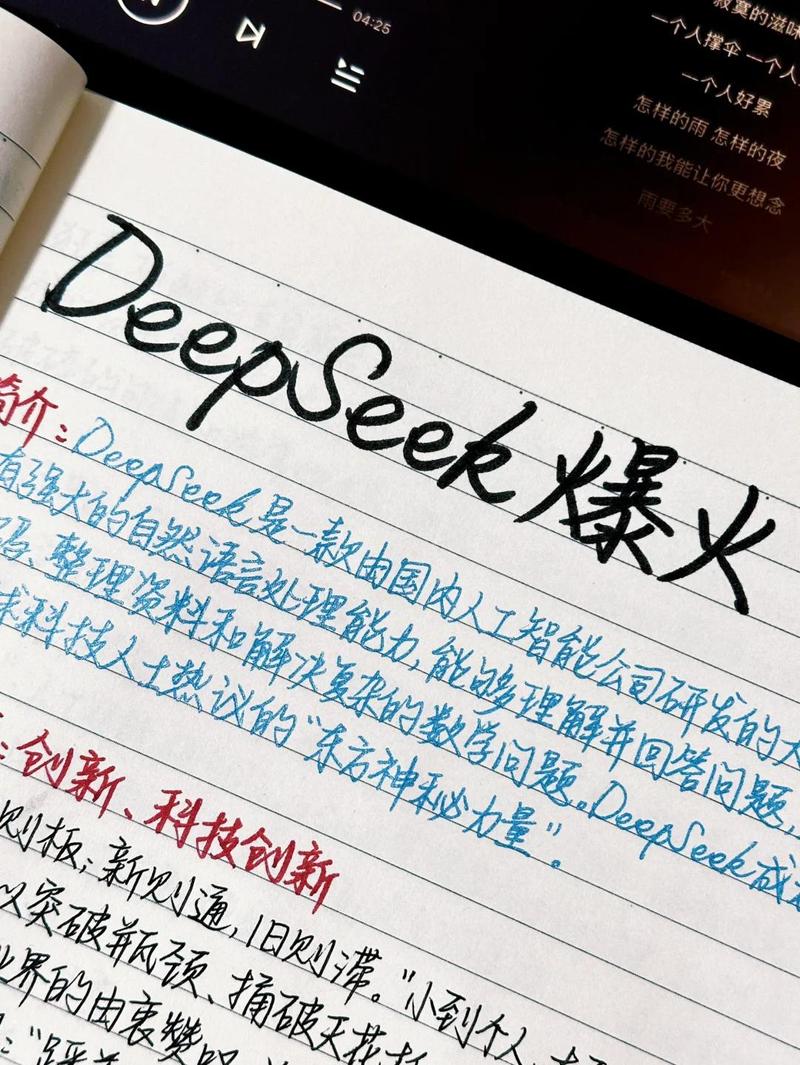 04:25
寂寞的滋味
一个人撑伞 一个人
一个人好累
怎样的雨 怎样的夜
怎样的我能让你更想念
雨要多大
DeepSeek爆火
简介:DeepSeek是一款由国内人工智能公司研发的大
有强大的自然语言处理能力,能够理解并回答问题,
码、整理资料和解决复杂的数学问题。DeepSeek成
球科技人士热议的“东方神秘力量”。
:创新、科技创新
则板;新则通,旧则滞。”小到个人,
以突破瓶颈、捅破天花板
业界的由衷赞叹